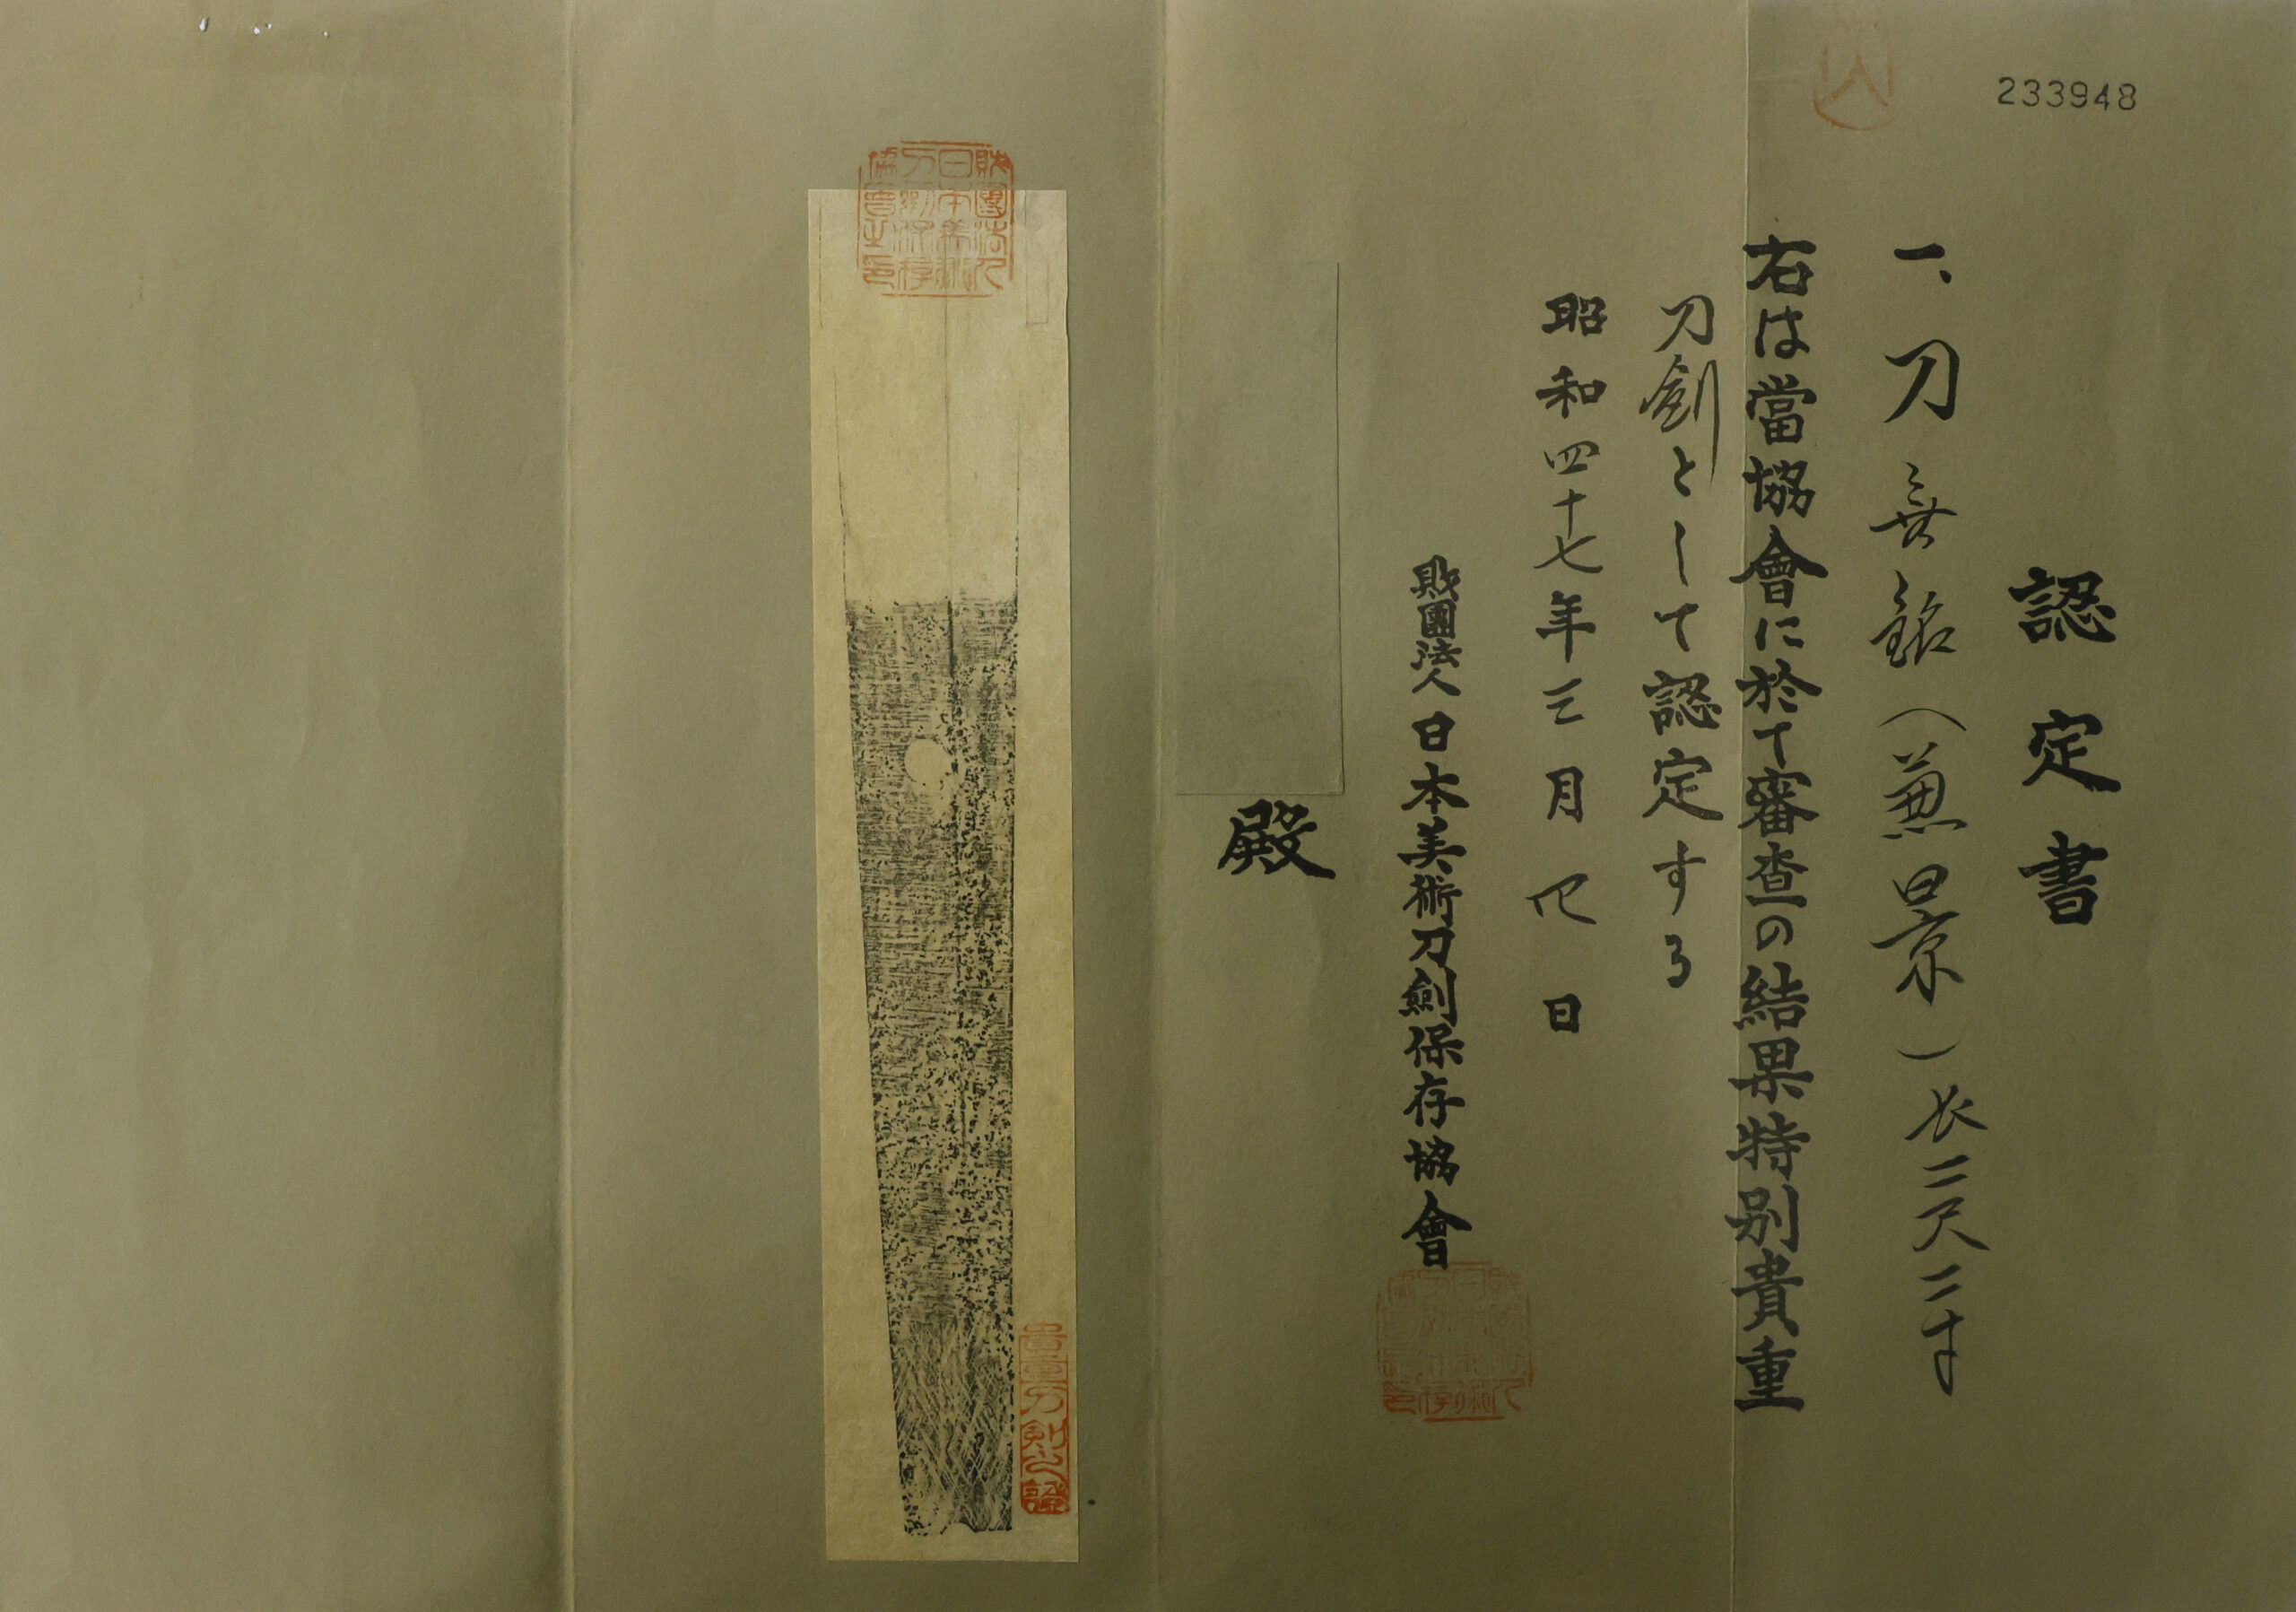 233948
認定書
一、刀 無銘(兼景)長二尺二寸
右は當協會に於て審査の結果特別貴重
刀劍として認定する
昭和四十七年三月 日
財團法人日本美術刀劍保存協會
殿
財團法人日本美術刀劍保存協會之印
貴重刀劍之證